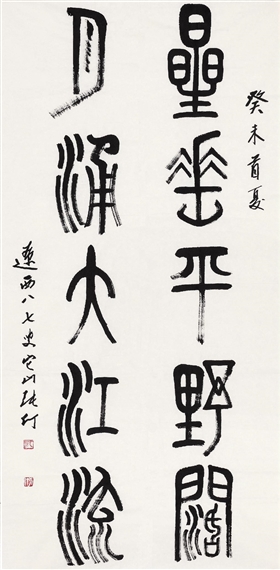 癸未首夏
星垂平野闊
月涌大江流
遼西八七叟它山張仃